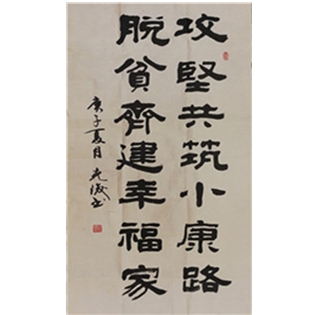 攻堅共筑小康路
脱貧齊建幸福家
庚子夏月